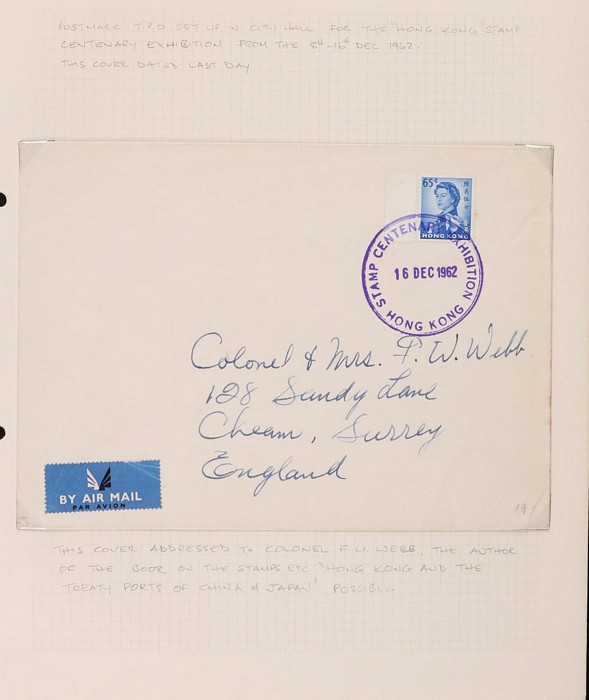 POSTMARK T.P.O SET UP IN CITY HALL FOR THE "HONG KONG" STAMP
CENTENARY EXHIBITION FROM THE 8th-16th DEC 1962.
THIS COVER DATED LAST DAY
65c
HONG KONG
STAMP CENTENARY EXHIBITION
16 DEC 1962
HONG KONG
Colonel & Mrs. F. W. Webb
128 Sandy Lane
Cheam, Surrey
England
BY AIR MAIL
PAR AVION
THIS COVER ADDRESSED TO COLONEL F W. WEBB, THE AUTHOR
OF THE BOOK ON THE STAMPS ETC "HONG KONG AND THE
TREATY PORTS OF CHINA & JAPAN" POSSIBLE.